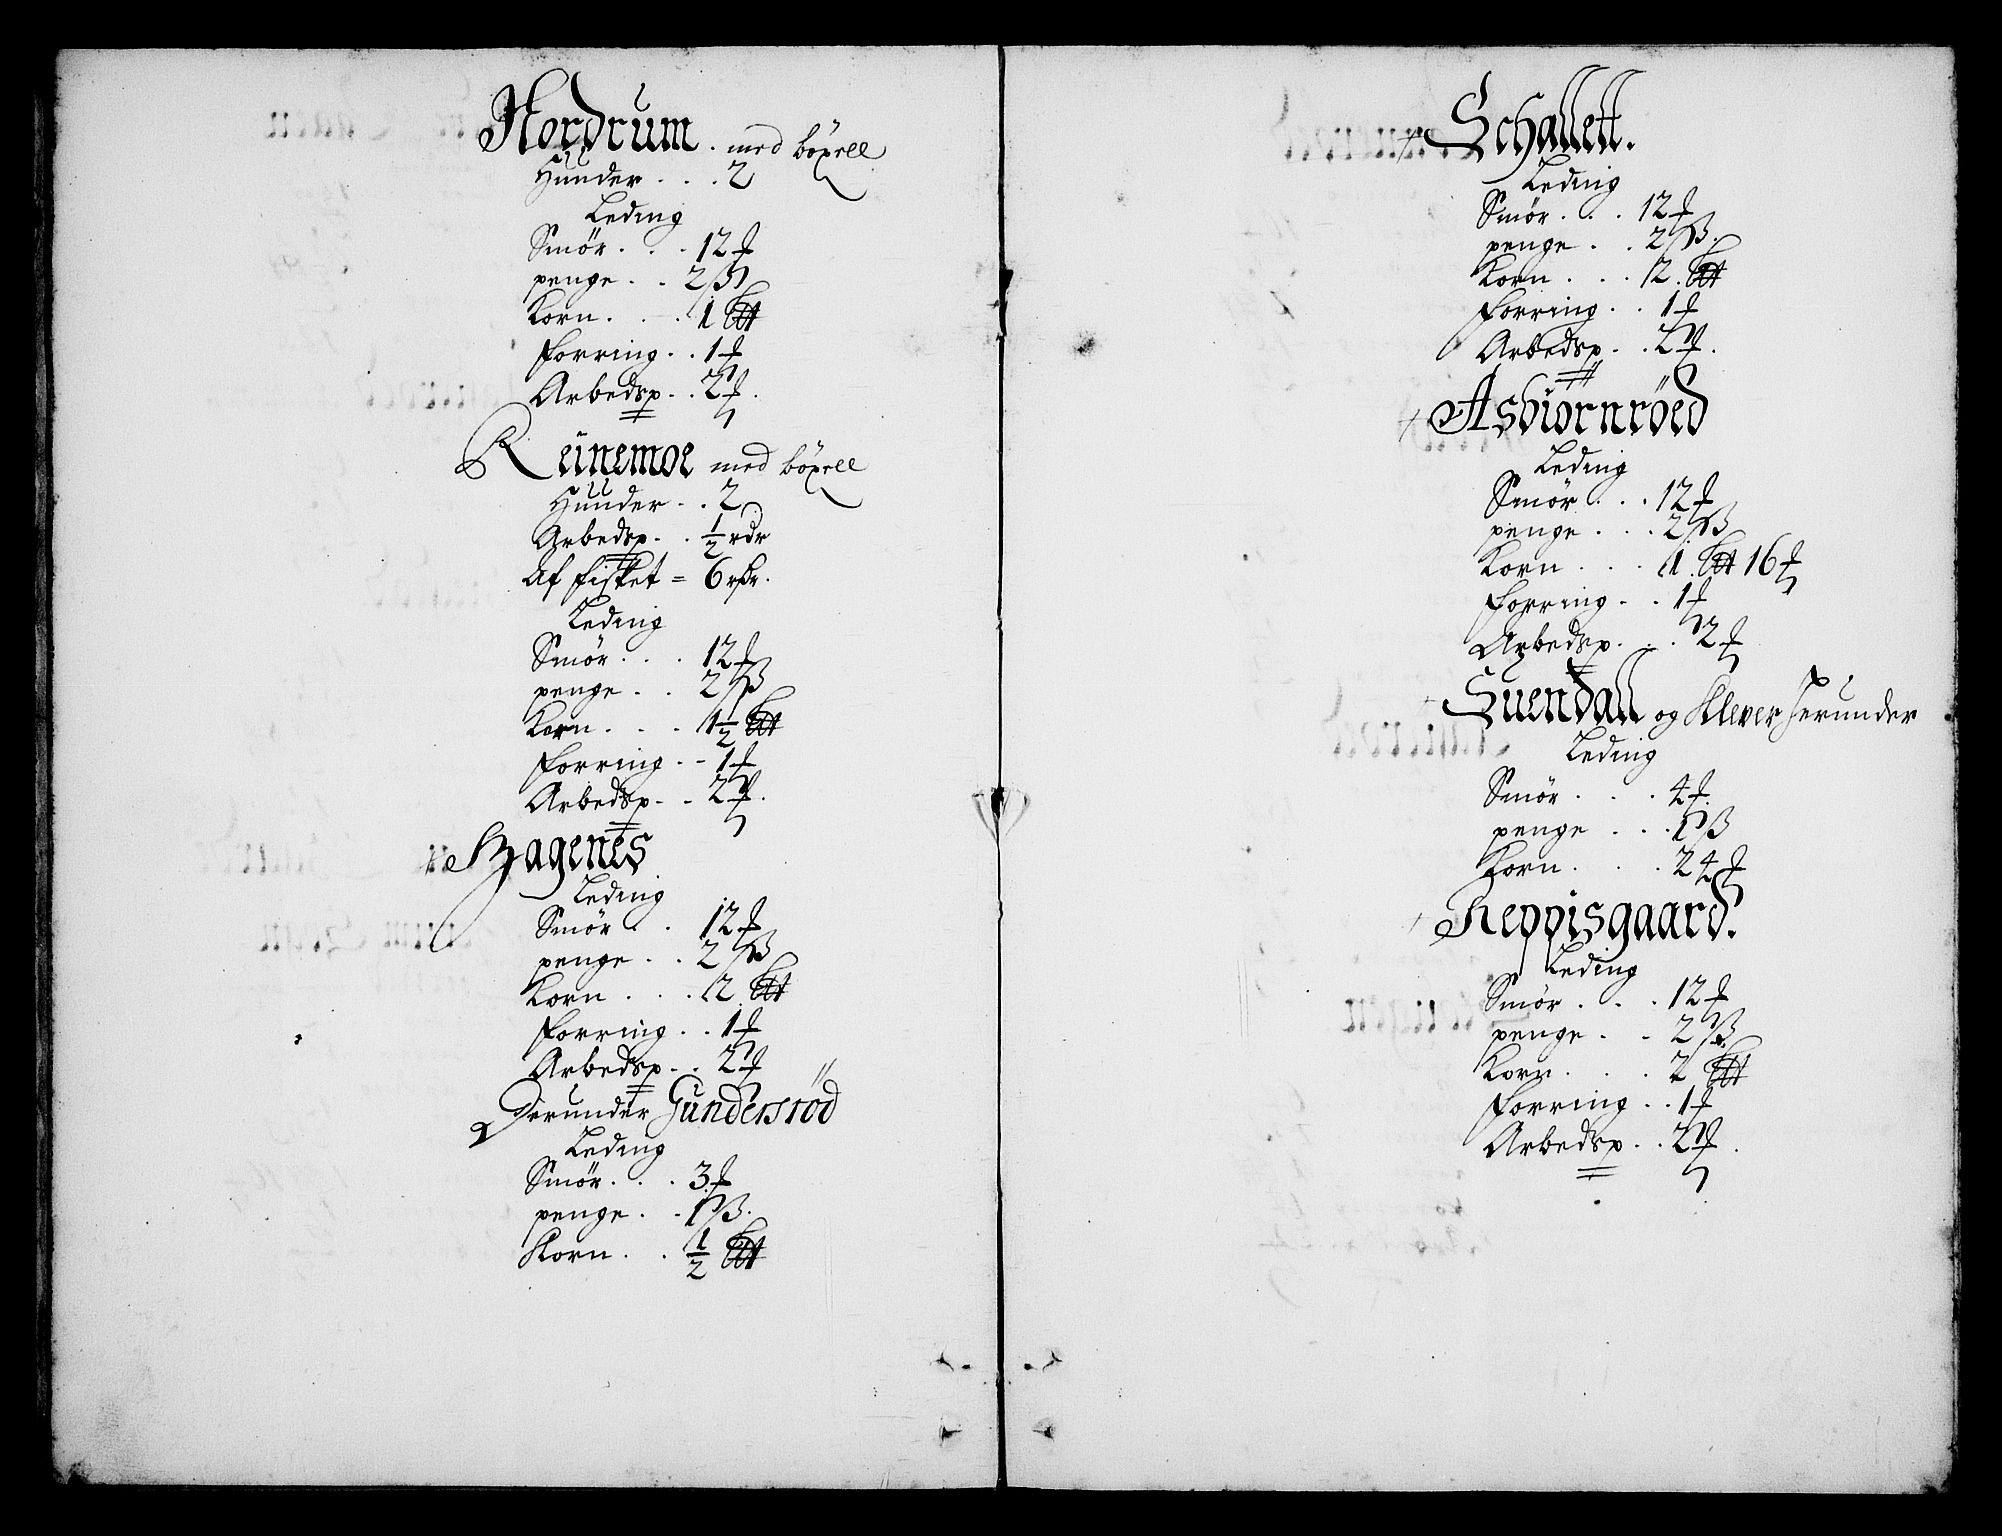 Nordrum. med böxell
Hunder . . . 2
Leding
Smör . . . 12 ℔
penge . . 2 ß
Korn . . . 1 Ltt
Forring . . 1 ℔
Arbedsp. . 2 ℔.
Reinemoe med böxell
Hunder . . 2
Arbedsp. . ½ rdr
Af fisket = 6 rdr.
Leding
Smör . . . 12 ℔
penge . . 2 ß
Korn . . . 1½ Ltt
Forring . - 1 ℔
Arbedsp. . 2 ℔.
Hagenes
Leding
Smör . . 12 ℔
penge . . 2 ß
Korn . . . 2 Ltt
Forring . . 1 ℔
Arbedsp. . 2 ℔
Derunder Gundersröd
Leding
Smör . . . 3 ℔
penge . . 1 ß.
Korn . . ½ Ltt
Schallett.
Leding
Smör . . . 12 ℔
penge . . 2 ß.
Korn . . . 2. Ltt
Forring . . 1 ℔
Arbedsp. . 2 ℔.
Asbiörnröed
Leding
Smör . . . 12 ℔
penge . . . 2 ß
Korn . . . 1. Ltt 16 ℔
Forring . . 1 ℔
Arbedsp. . . 2 ℔
Suendall og Klever Jerunder
Leding
Smör . . . 4 ℔.
penge . . . 1 ß
Korn . . . 24 ℔
Keppisgaard.
Leding
Smör . . . 12 ℔
penge . . 2 ß.
Korn . . . 2 Ltt
Forring . . 1 ℔
Arbedsp. . 2 ℔.